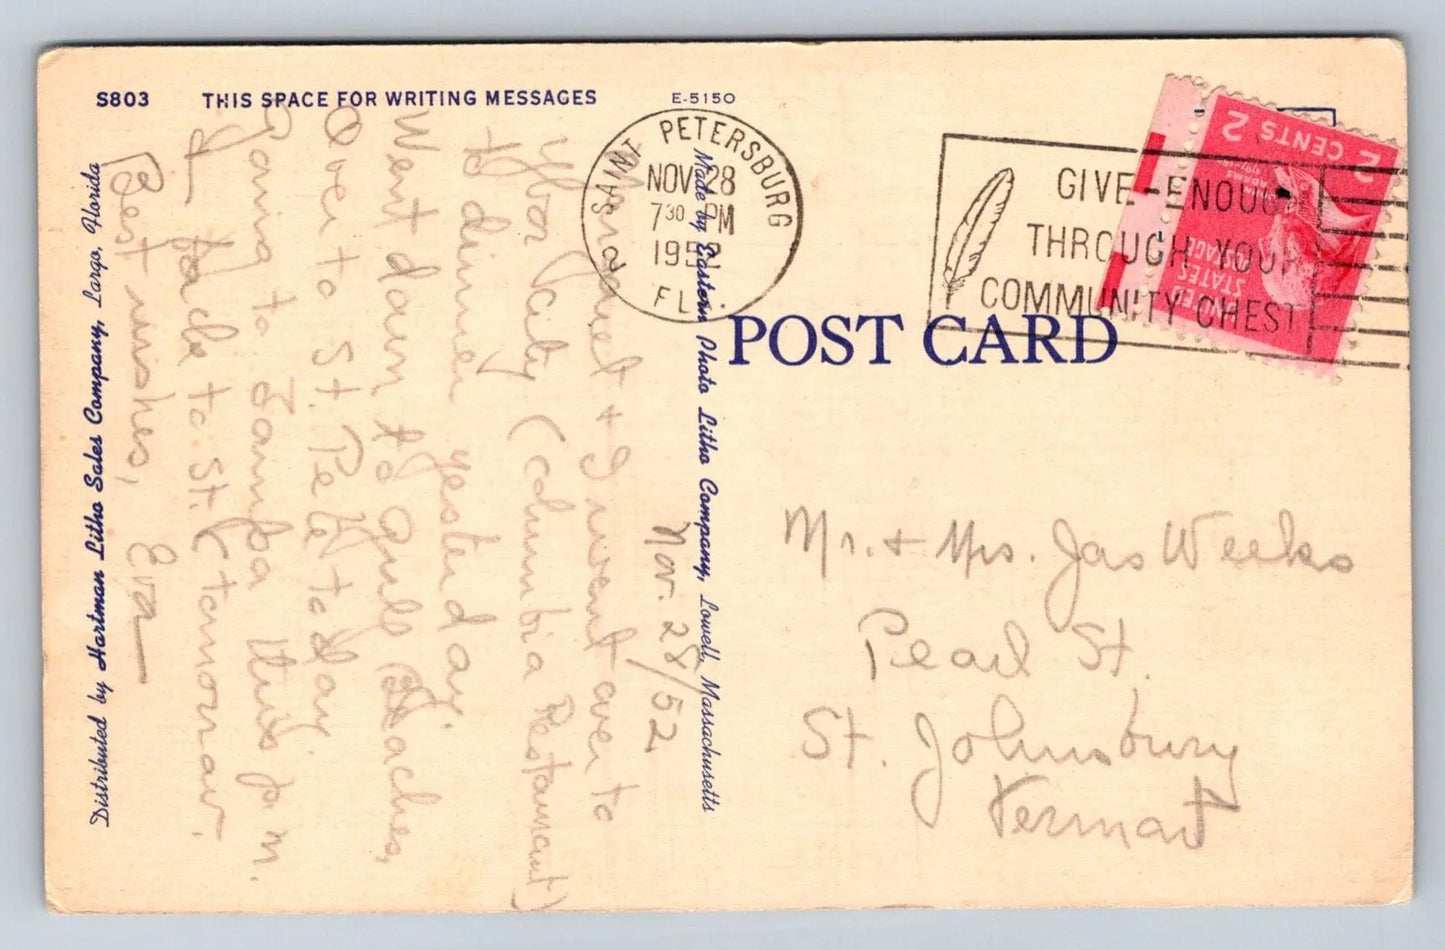 S803 THIS SPACE FOR WRITING MESSAGES E-5150
Nov. 28/52
Margaret + I went over to
Ybor City (Columbia Restaurant)
to dinner yesterday.
Went down to Gulf Beaches,
Over to St. Pete today.
Going to Tampa this p.m.
& back to St. P tomorrow.
Best wishes, Eva
Distributed by Hartman Litho Sales Company, Largo, Florida
Made by Eastern Photo Litho Company, Lowell, Massachusetts
SAINT PETERSBURG
NOV 28
7 30 PM
1952
FLA
GIVE-ENOUGH
THROUGH YOUR
COMMUNITY CHEST
2 CENTS 2
UNITED
STATES
POSTAGE
POST CARD
Mr. + Mrs. Jas Weeks
Pearl St.
St. Johnsbury
Vermont